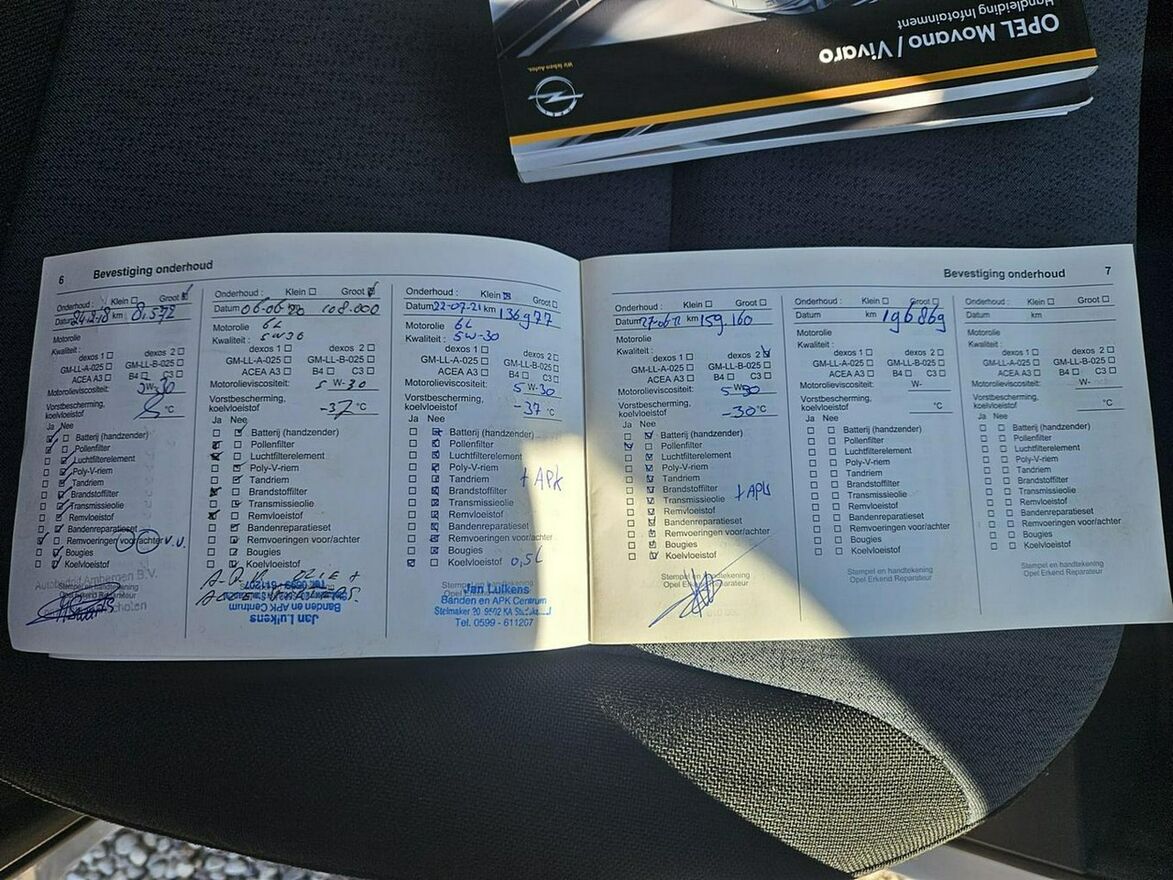 OPEL Movano / Vivaro
Handleiding Infotainment
Wir leben Autos.
6 Bevestiging onderhoud
Onderhoud : Klein Groot
Datum km
Motorolie
Kwaliteit :
dexos 1 dexos 2
GM-LL-A-025 GM-LL-B-025
ACEA A3 B4 C3
Motorolieviscositeit: W-30
Vorstbescherming,
koelvloeistof °C
Ja Nee
Batterij (handzender)
Pollenfilter
Luchtfilterelement
Poly-V-riem
Tandriem
Brandstoffilter
Transmissieolie
Remvloeistof
Bandenreparatieset
Remvoeringen voor/achter V.V.
Bougies
Koelvloeistof
Stempel en handtekening
Opel Erkend Reparateur
Onderhoud : Klein Groot
Datum 06-06-20 108.000
Motorolie 6L
Kwaliteit : 5W30
dexos 1 dexos 2
GM-LL-A-025 GM-LL-B-025
ACEA A3 B4 C3
Motorolieviscositeit: 5 W-30
Vorstbescherming,
koelvloeistof -37 °C
Ja Nee
Batterij (handzender)
Pollenfilter
Luchtfilterelement
Poly-V-riem
Tandriem
Brandstoffilter
Transmissieolie
Remvloeistof
Bandenreparatieset
Remvoeringen voor/achter
Bougies
Koelvloeistof
Jan Luikens
Banden en APK Centrum
Tel. 0599 - 611207
Onderhoud : Klein Groot
Datum 22-07-21 km 136977
Motorolie 6L
Kwaliteit : 5W-30
dexos 1 dexos 2
GM-LL-A-025 GM-LL-B-025
ACEA A3 B4 C3
Motorolieviscositeit: 5 W-30
Vorstbescherming,
koelvloeistof -37 °C
Ja Nee
Batterij (handzender)
Pollenfilter
Luchtfilterelement
Poly-V-riem
Tandriem + APK
Brandstoffilter
Transmissieolie
Remvloeistof
Bandenreparatieset
Remvoeringen voor/achter
Bougies
Koelvloeistof 0,5L
Jan Luikens
Banden en APK Centrum
Stelmaker 20, 9502 KA
Tel. 0599 - 611207
Bevestiging onderhoud 7
Onderhoud : Klein Groot
Datum km 159.160
Motorolie
Kwaliteit :
dexos 1 dexos 2
GM-LL-A-025 GM-LL-B-025
ACEA A3 B4 C3
Motorolieviscositeit: 5 W30
Vorstbescherming,
koelvloeistof -30 °C
Ja Nee
Batterij (handzender)
Pollenfilter
Luchtfilterelement
Poly-V-riem
Tandriem
Brandstoffilter + APK
Transmissieolie
Remvloeistof
Bandenreparatieset
Remvoeringen voor/achter
Bougies
Koelvloeistof
Stempel en handtekening
Opel Erkend Reparateur
Onderhoud : Klein Groot
Datum km 196869
Motorolie
Kwaliteit :
dexos 1 dexos 2
GM-LL-A-025 GM-LL-B-025
ACEA A3 B4 C3
Motorolieviscositeit: W-
Vorstbescherming,
koelvloeistof °C
Ja Nee
Batterij (handzender)
Pollenfilter
Luchtfilterelement
Poly-V-riem
Tandriem
Brandstoffilter
Transmissieolie
Remvloeistof
Bandenreparatieset
Remvoeringen voor/achter
Bougies
Koelvloeistof
Stempel en handtekening
Opel Erkend Reparateur
Onderhoud : Klein Groot
Datum km
Motorolie
Kwaliteit :
dexos 1 dexos 2
GM-LL-A-025 GM-LL-B-025
ACEA A3 B4 C3
Motorolieviscositeit: W-
Vorstbescherming,
koelvloeistof °C
Ja Nee
Batterij (handzender)
Pollenfilter
Luchtfilterelement
Poly-V-riem
Tandriem
Brandstoffilter
Transmissieolie
Remvloeistof
Bandenreparatieset
Remvoeringen voor/achter
Bougies
Koelvloeistof
Stempel en handtekening
Opel Erkend Reparateur